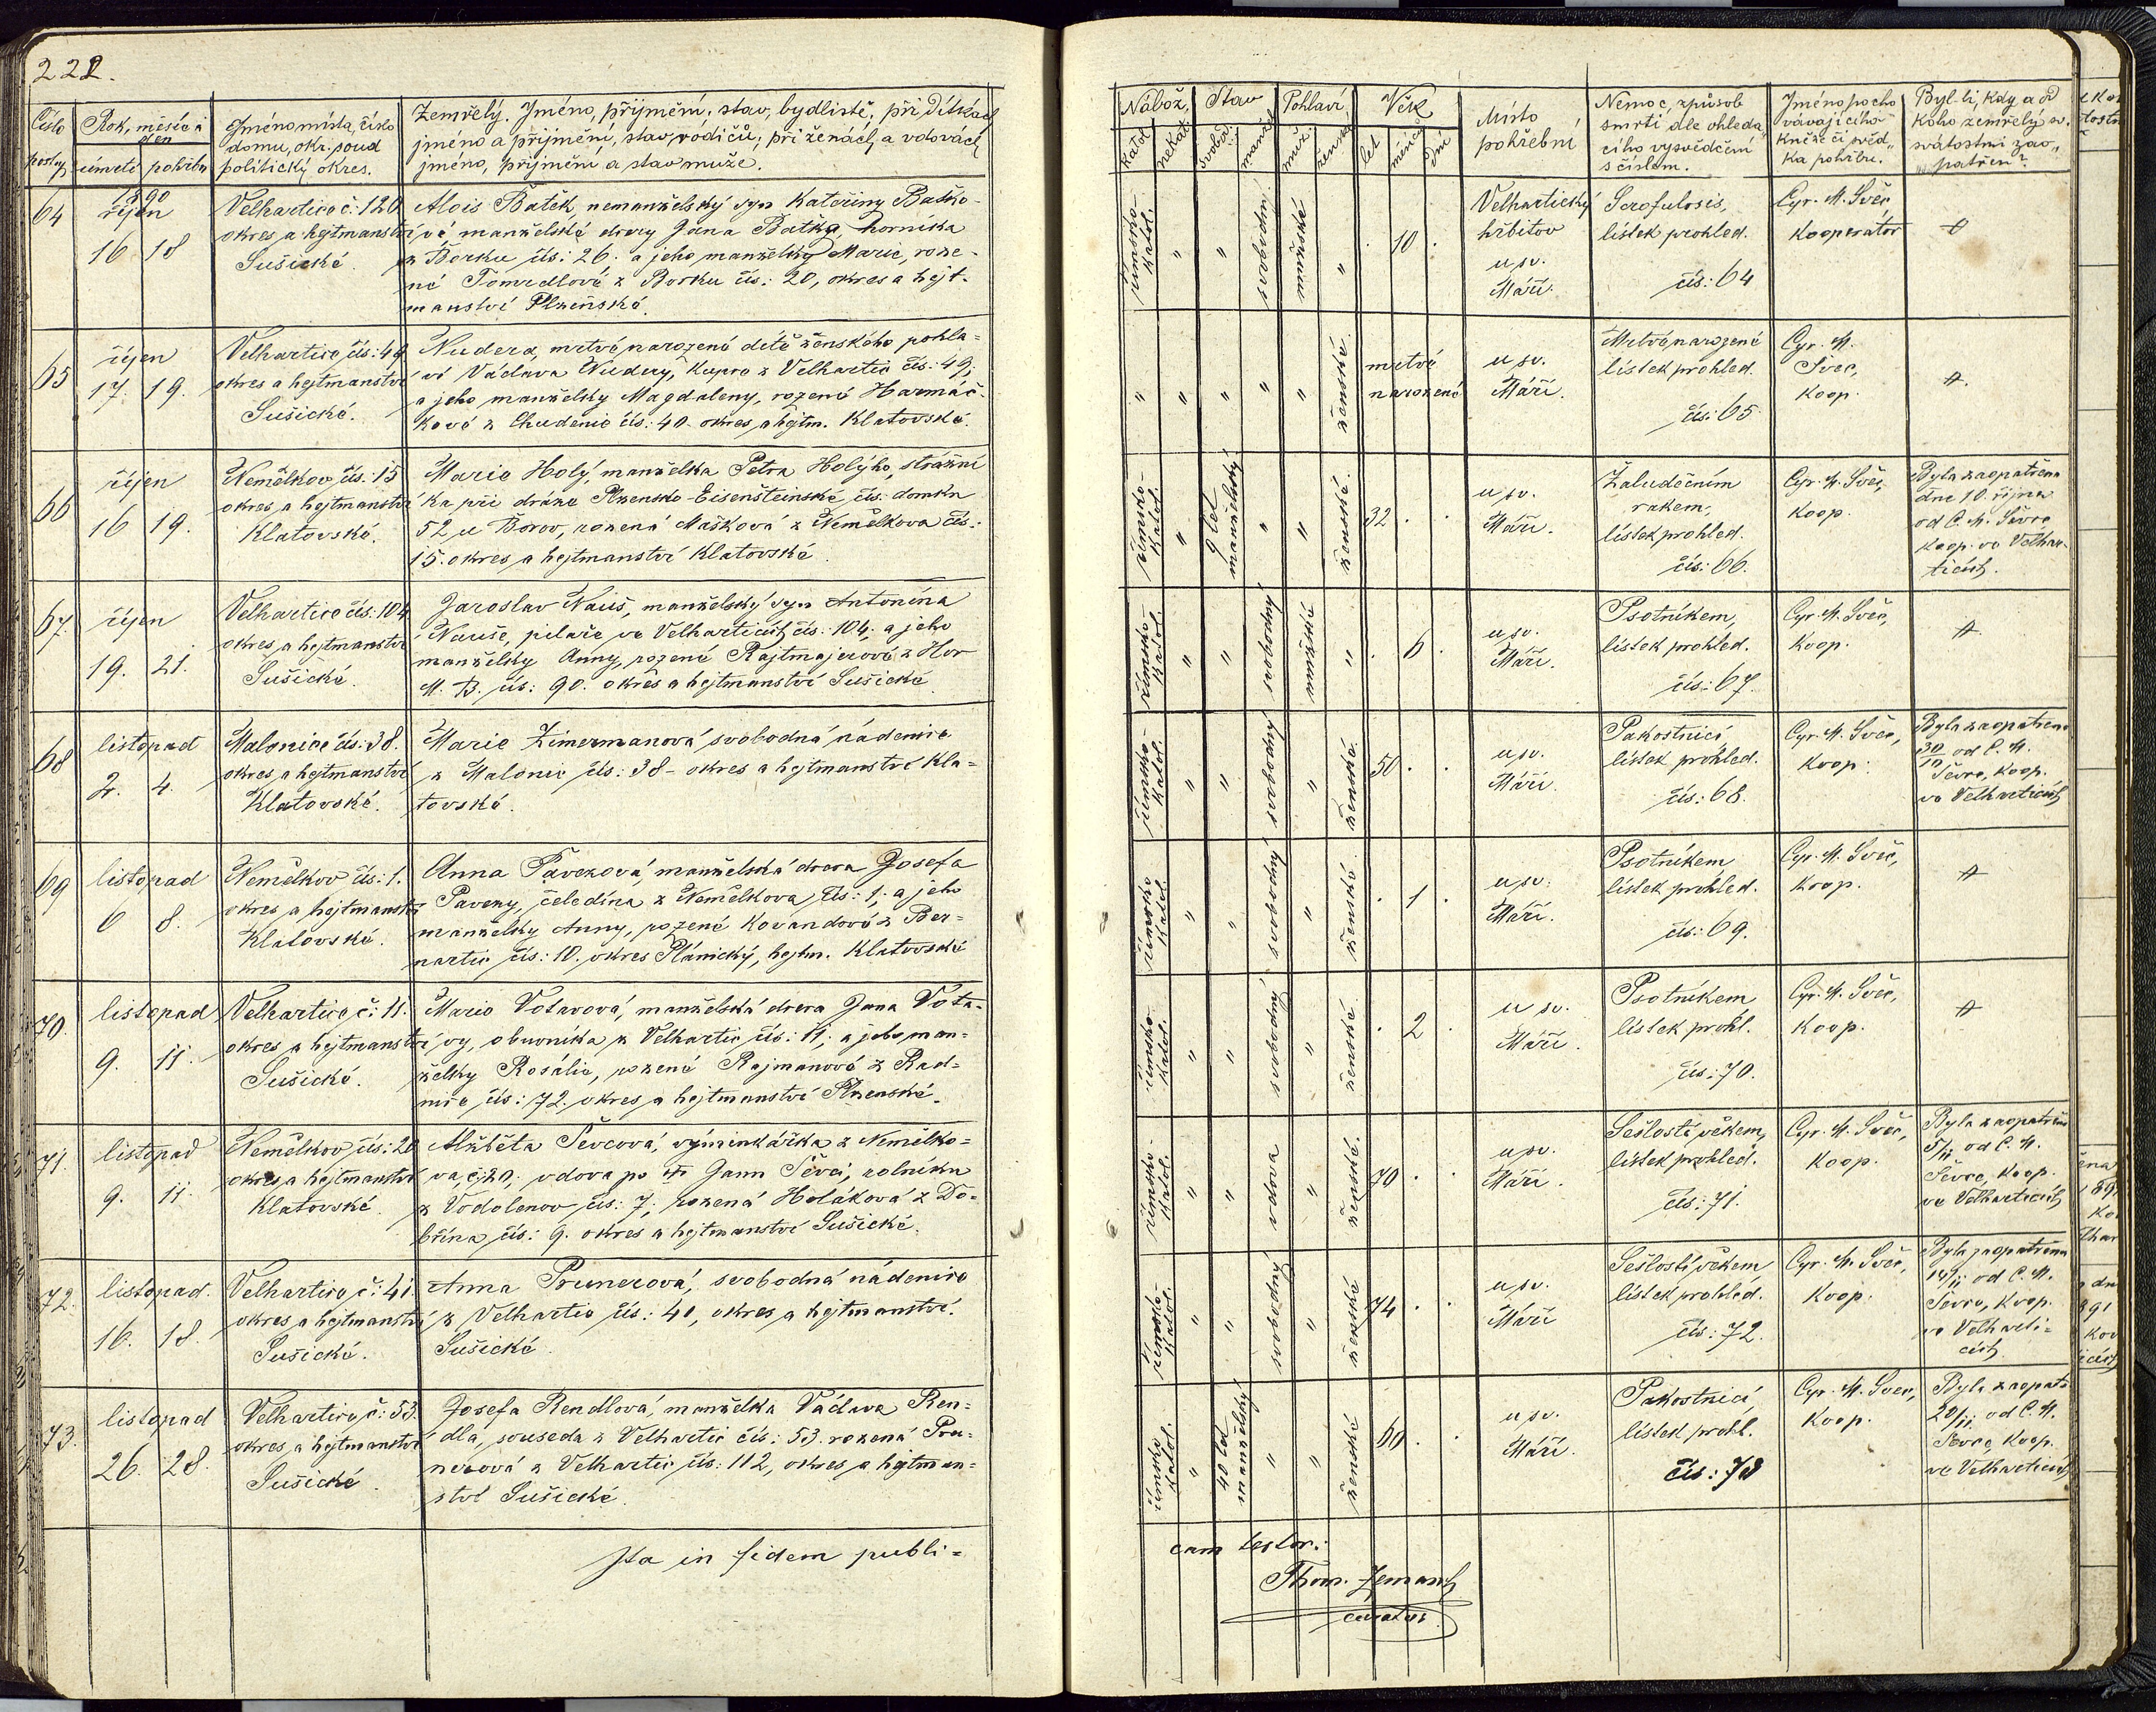 222.
Číslo
postup.
Rok, měsíc a
den
úmrtí
pohřbu
Jméno místa, číslo
domu, okr. soud
politický okres.
Zemřelý. Jméno, příjmění, stav, bydliště; při dítkách
jméno a příjmění, stav, rodičů; při ženách, a vdovách
jméno, příjmění a stav muže.
64
1890
říjen
16 18
Velhartice č: 120
okres a hejtmanství
Sušické.
Alois Batěk, nemanželský syn Kateřiny Baťko-
vé manželské dcery Jana Baťka horníka
z Borku čís: 26. a jeho manželky Marie, roze-
né Tomedlové z Borku čís: 20, okres a hejt-
manství Plzeňské.
65
říjen
17. 19.
Velhartice čís: 49
okres a hejtmanství
Sušické.
Nudera, mrtvé narozené dítě ženského pohla-
ví Václava Nudery, kupce z Velhartic čís: 49;
a jeho manželky Magdaleny, rozené Harmáč-
kové z Chudenic čís: 40. okres a hejtm. Klatovské.
66
říjen
16 19.
Nemělkov čís: 15
okres a hejtmanství
Klatovské.
Marie Holý, manželka Petra Holýho, strážní
ka při dráze Plzensko-Eisenšteinské čís. domku
52, u Borov, rozená Mašková z Nemělkova čís:
15. okres a hejtmanství Klatovské.
67.
říjen
19. 21.
Velhartice čís: 104
okres a hejtmanství
Sušické.
Jaroslav Nauš, manželský syn Antonína
Nauše, pilaře ve Velharticích čís: 104; a jeho
manželky Anny, rozené Rajtmajerové z Hor
M. B. čís: 90. okres a hejtmanství Sušické.
68
listopad
2. 4.
Malonice čís: 38.
okres a hejtmanství
Klatovské.
Marie Zimermanová, svobodná nádenice
z Malonic čís: 38 - okres a hejtmanství Kla-
tovské.
69
listopad
6 8.
Nemělkov čís: 1.
okres a hejtmanství
Klatovské.
Anna Pavezová, manželská dcera Josefa
Paveny, čeledína z Nemělkova čís: 1; a jeho
manželky Anny, rozené Kovandové z Ber-
nartic čís: 10. okres Plánický, hejtm. Klatovské
70.
listopad
9. 11.
Velhartice č: 11.
okres a hejtmanství
Sušické.
Marie Votavová, manželská dcera Jana Vota-
vy, obuvníka z Velhartic čís: 11; a jeho man-
želky Rosálie, rozené Rajmanové z Rad-
nic čís: 72. okres a hejtmanství Plzenské.
71.
listopad
9. 11.
Nemělkov čís: 20
okres a hejtmanství
Klatovské.
Alžběta Ševcová, výminkářka z Nemělko-
va č: 20; vdova po † Janu Ševci, rolníku
z Vodolenov čís: 7; rozená Holáková z Do-
břína čís: 9. okres a hejtmanství Sušické.
72.
listopad.
16. 18.
Velhartice č: 41
okres a hejtmanství
Sušické.
Anna Prunerová, svobodná nádenice
z Velhartic čís: 41, okres a hejtmanství.
Sušické.
73.
listopad
26. 28.
Velhartice č: 53.
okres a hejtmanství
Sušické.
Josefa Rendlová, manželka Václava Ren-
dla, souseda z Velhartic čís: 53. rozená Pru-
nerová z Velhartic čís: 112, okres a hejtman-
ství Sušické.
Ita in fidem publi=
Nábož.
katol.
nekat.
Stav
svobod.
manžel.
Pohlaví
muž.
ženské
Věk
let
měsíců
dní
Místo
pohřební
Nemoc, způsob
smrti dle ohleda-
cího vysvědčení
s číslem.
Jméno pocho
vávajícího
kněze či před-
ka pohřbu.
Byl-li, kdy a od
koho zemřelý sv.
svátostmi zao-
patřen?
římsko-
katol.
"
"
svobodný
mužské
"
.
10
.
Velhartický
hřbitov
u sv.
Máří.
Scrofulosis,
lístek prohled.
čís: 64
Cyr. M. Švec
kooperátor
"
"
"
"
"
ženské.
mrtvé
narozené
u sv.
Máří.
Mrtvě narozené
lístek prohled.
čís: 65
Cyr. M.
Švec,
koop.
římsko-
katol.
"
9 let
manželský
"
"
ženské.
32
.
.
u sv.
Máří.
Žaludečním
rakem,
lístek prohled.
čís: 66.
Cyr. M. Švec,
koop.
Byla zaopatřena
dne 10. října
od C. M. Ševce
koop. ve Velhar-
ticích.
římsko-
katol.
"
"
svobodný
mužské
"
.
6
.
u sv.
Máří.
Psotníkem,
lístek prohled.
čís: 67.
Cyr. M. Švec,
koop.
římsko-
katol.
"
"
svobodný
"
ženské.
50
.
.
u sv.
Máří.
Pakostnicí
lístek prohled.
čís: 68.
Cyr. M. Švec,
koop.
Byla zaopatřena
30/10 od C. M.
Ševce, koop.
ve Velharticích
římsko
katol.
"
"
svobodný
"
ženské.
.
1
.
u sv.
Máří.
Psotníkem
lístek prohled.
čís: 69.
Cyr. M. Švec,
koop.
římsko
katol.
"
"
svobodný
"
ženské.
.
2
.
u sv.
Máří.
Psotníkem
lístek prohl.
čís: 70.
Cyr. M. Švec,
koop.
římsko
katol.
"
"
vdova
"
ženské.
70
.
.
u sv.
Máří.
Sešlostí věkem,
lístek prohled.
čís: 71.
Cyr. M. Švec,
koop.
Byla zaopatřena
5/11 od C. M.
Ševce, koop.
ve Velharticích
římsko-
katol.
"
"
svobodný
"
ženské
74
.
.
u sv.
Máří
Sešlostí věkem
lístek prohled.
čís: 72.
Cyr. M. Švec,
koop.
Byla zaopatřena
14/11 od C. M.
Ševce, koop.
ve Velharti-
cích
římsko
katol.
"
40 let
manželský
"
"
ženské
60
.
.
u sv.
Máří.
Pakostnicí,
lístek prohl.
čís: 73
Cyr. M. Švec,
koop.
Byla zaopatř.
20/11 od C. M.
Ševce, koop.
ve Velharticích
cam testor.:
Thom. Zeman
curatus